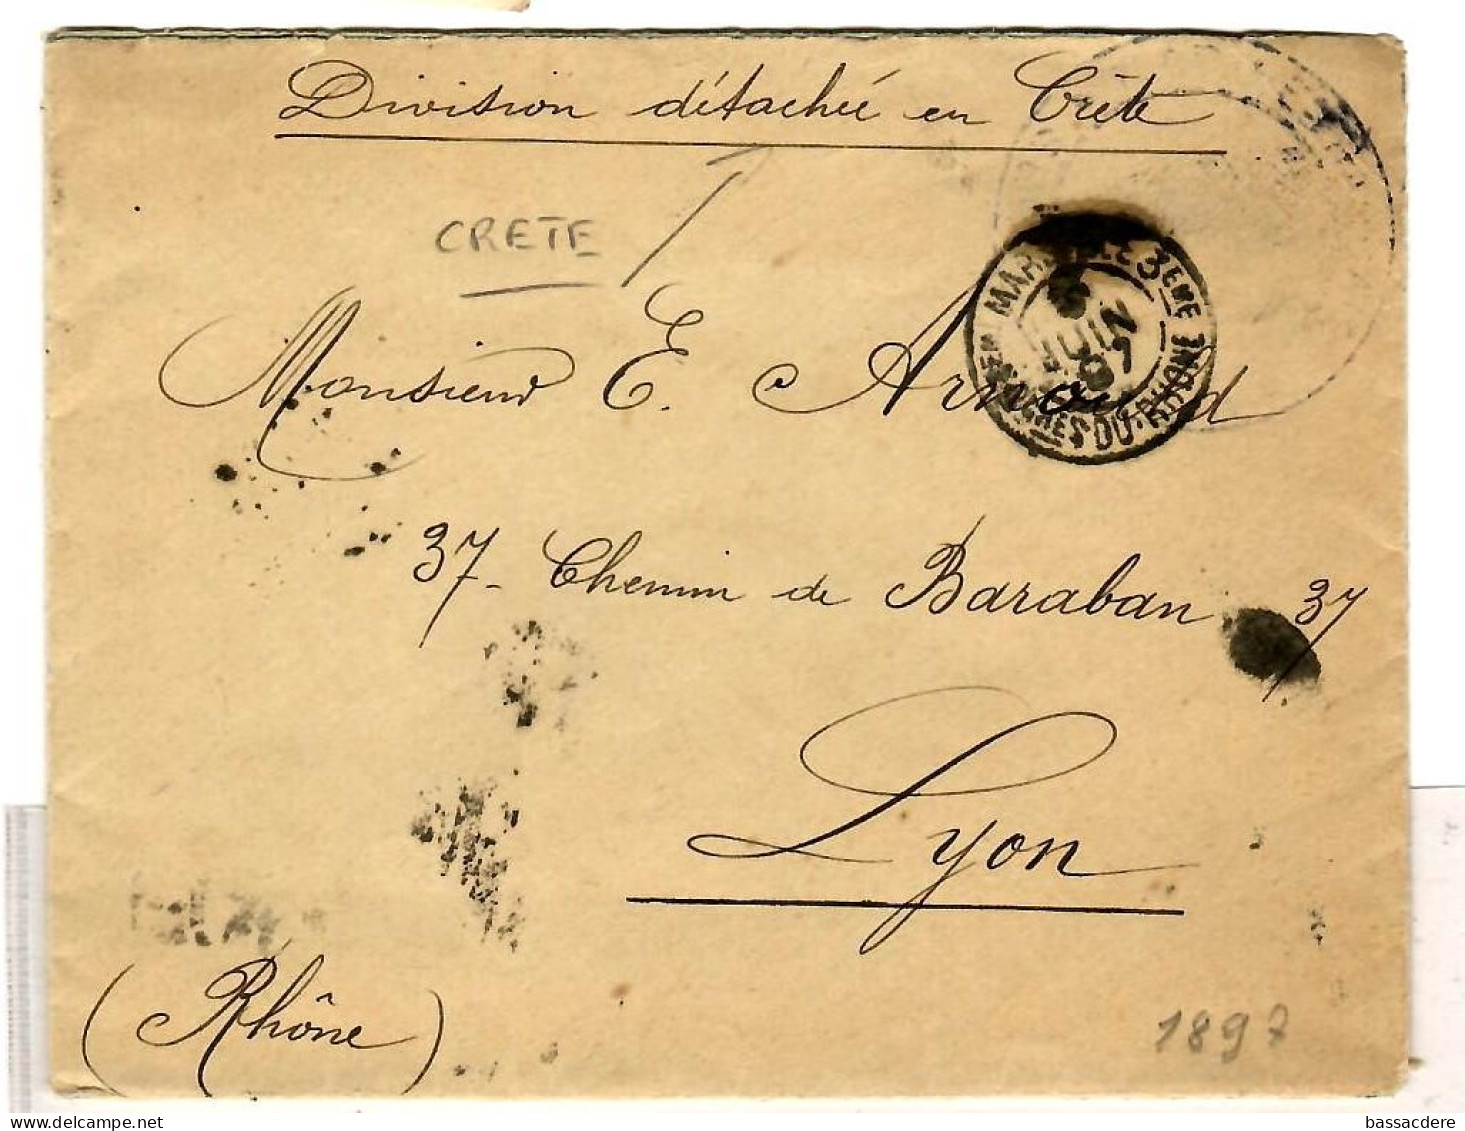 Division détachée en Crète
CRETE
MARSEILLE 3EME
JUIN
97
BOUCHES DU RHONE
Monsieur E. Arnaud
37 - Chemin de Baraban 37
Lyon
(Rhône)
1897
bassacdere